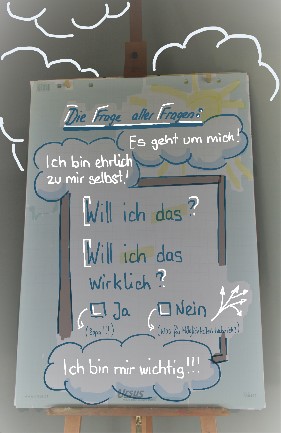 Die Frage aller Fragen:
Es geht um mich!
Ich bin ehrlich
zu mir selbst!
Will ich das?
Will ich das
wirklich?
Ja
Nein
Ich bin mir wichtig!!!